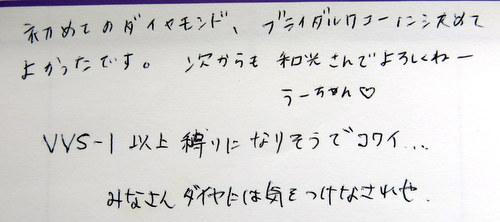 初めてのダイヤモンド、ブライダルワコーに決めて
よかったです。次からも和光さんでよろしくねー
うーちゃん♡
VVS-1以上縛りになりそうでコワイ...
みなさんダイヤには気をつけなされせ.